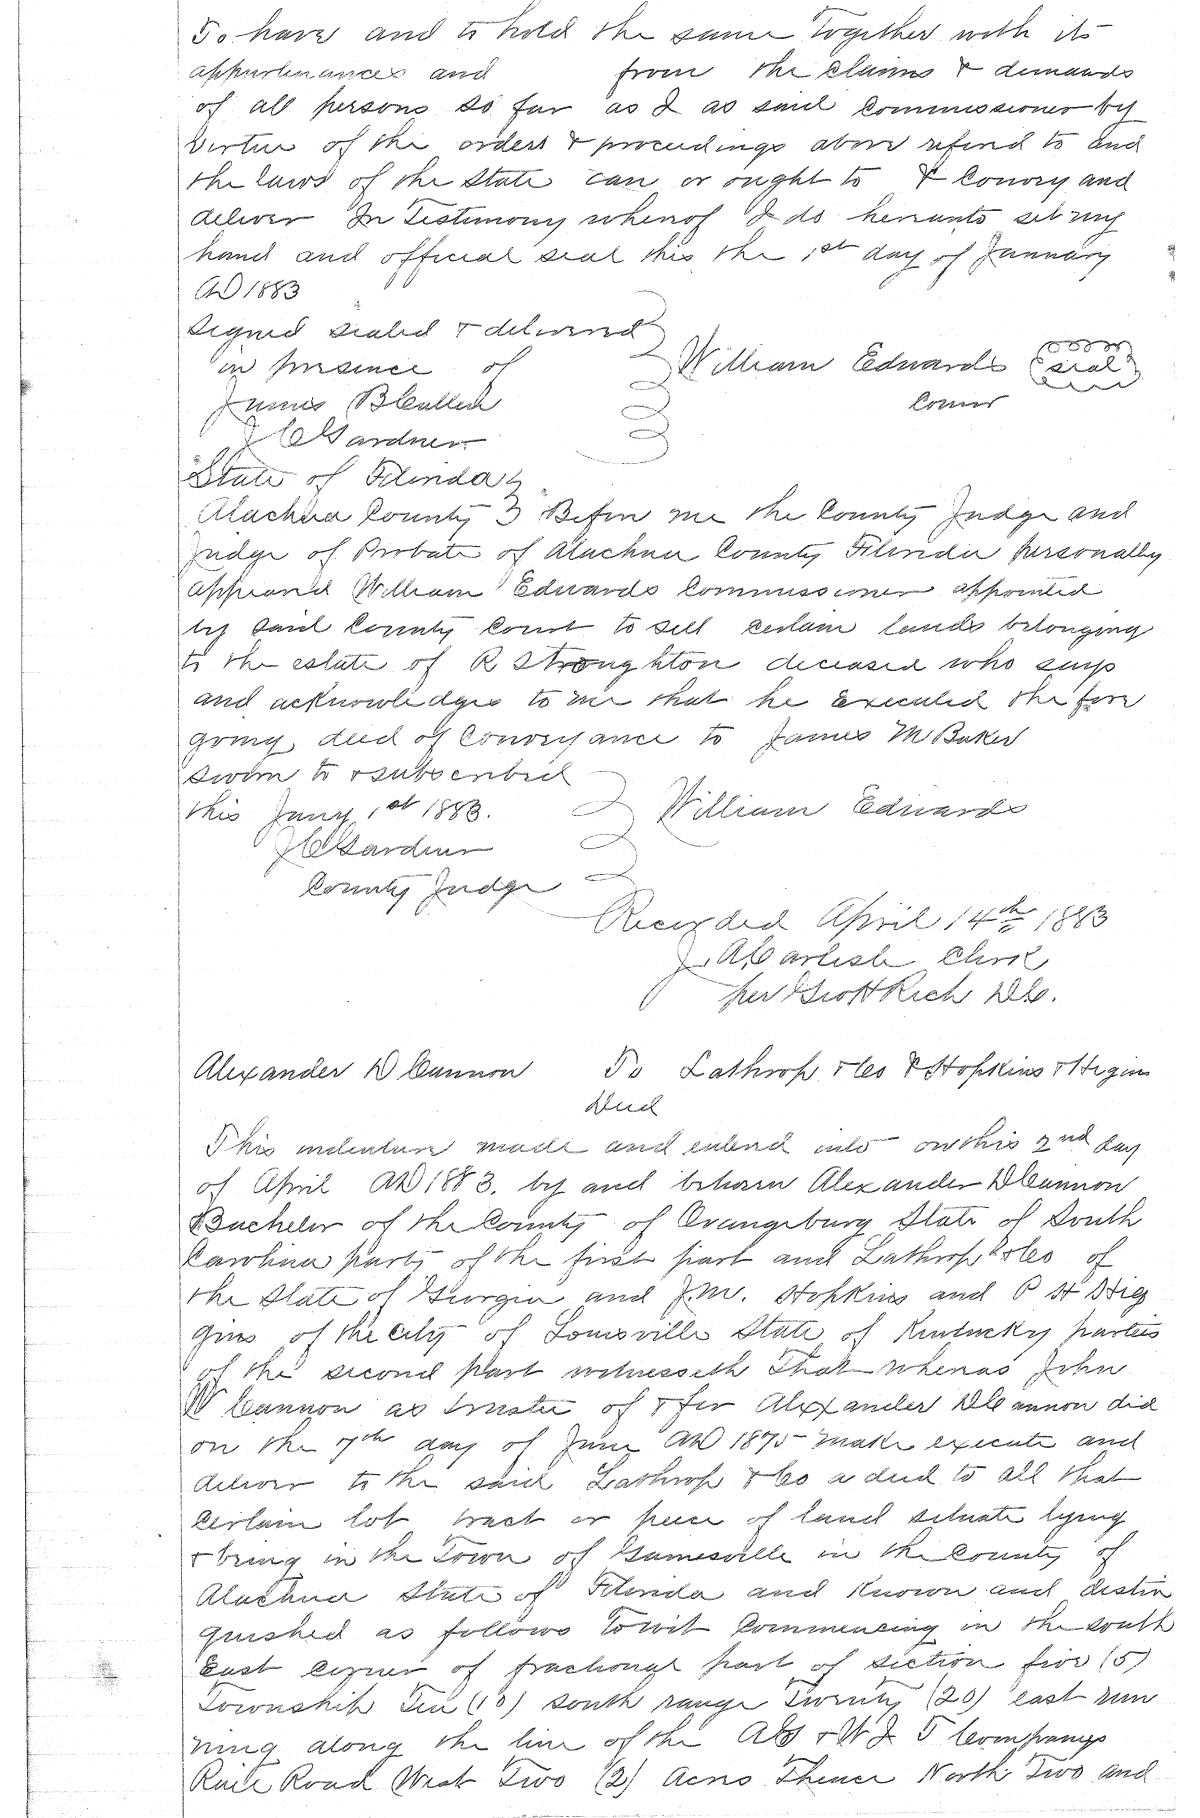 To have and to hold the same together with its
appurtenances and from the claims & demands
of all persons so far as I as said Commissioner by
virtue of the orders & proceedings above refered to and
the laws of the State can or ought to & Convey and
deliver In Testimony whereof I do hereunto set my
hand and official seal this the 1st day of January
AD 1883
Signed sealed & delivered
in presence of William Edwards (seal)
James B Cullen Comr
J C Gardner
State of Florida
Alachua County } Before me the County Judge and
Judge of Probate of Alachua County Florida personally
appeared William Edwards Commissioner appointed
by said County Court to sell certain lands belonging
to the estate of R Stroughton deceased who says
and acknowledges to me that he executed the fore
going deed of Conveyance to James M Baker
Sworn to & subscribed
this Jany 1st 1883. William Edwards
J C Gardner
County Judge
Recorded April 14th 1883
J. A. Carlisle Clerk
per Scott Rich D.C.
Alexander D Cannon To Lathrop & Co & Hopkins & Higins
Deed
This indenture made and entered into on this 2nd day
of April AD 1883. by and between Alexander D Cannon
Bachelor of the County of Orangeburg State of South
Carolina party of the first part and Lathrop & Co of
the State of Georgia and J. M. Hopkins and P H Hig
gins of the City of Louisville State of Kentucky parties
of the second part witnesseth That whereas John
W Cannon as trustee of & for Alexander D Cannon did
on the 7th day of June AD 1875 make execute and
deliver to the said Lathrop & Co a deed to all that
certain lot tract or piece of land situate lying
& being in the Town of Gainesville in the County of
Alachua State of Florida and Known and distin
guished as follows Towit Commencing in the south
East corner of fractional part of section five (5)
Township Ten (10) south range Twenty (20) east run
ning along the line of the A G & W I T Companys
Rail Road West Two (2) Acres Thence North Two and